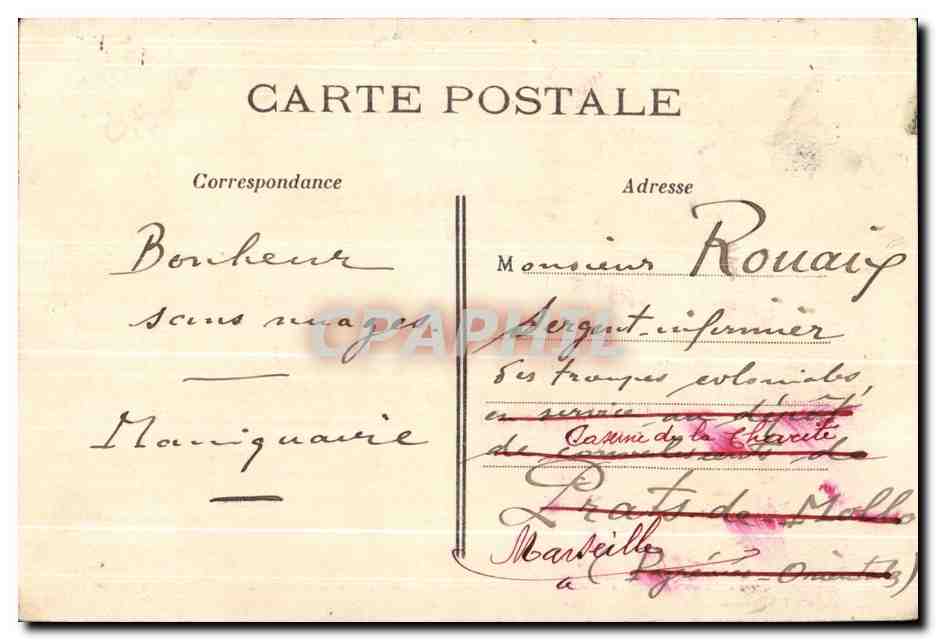 CARTE POSTALE
Correspondance
Bonheur
sans nuages.
Maniquaire
Adresse
Monsieur Rouaix
Sergent-infirmier
des troupes coloniales,
en service au dépôt
Caserne de la Charité
de convalescents de
Prats-de-Mollo
Marseille
a
(Pyrénées-Orientales)
CPAPHIL